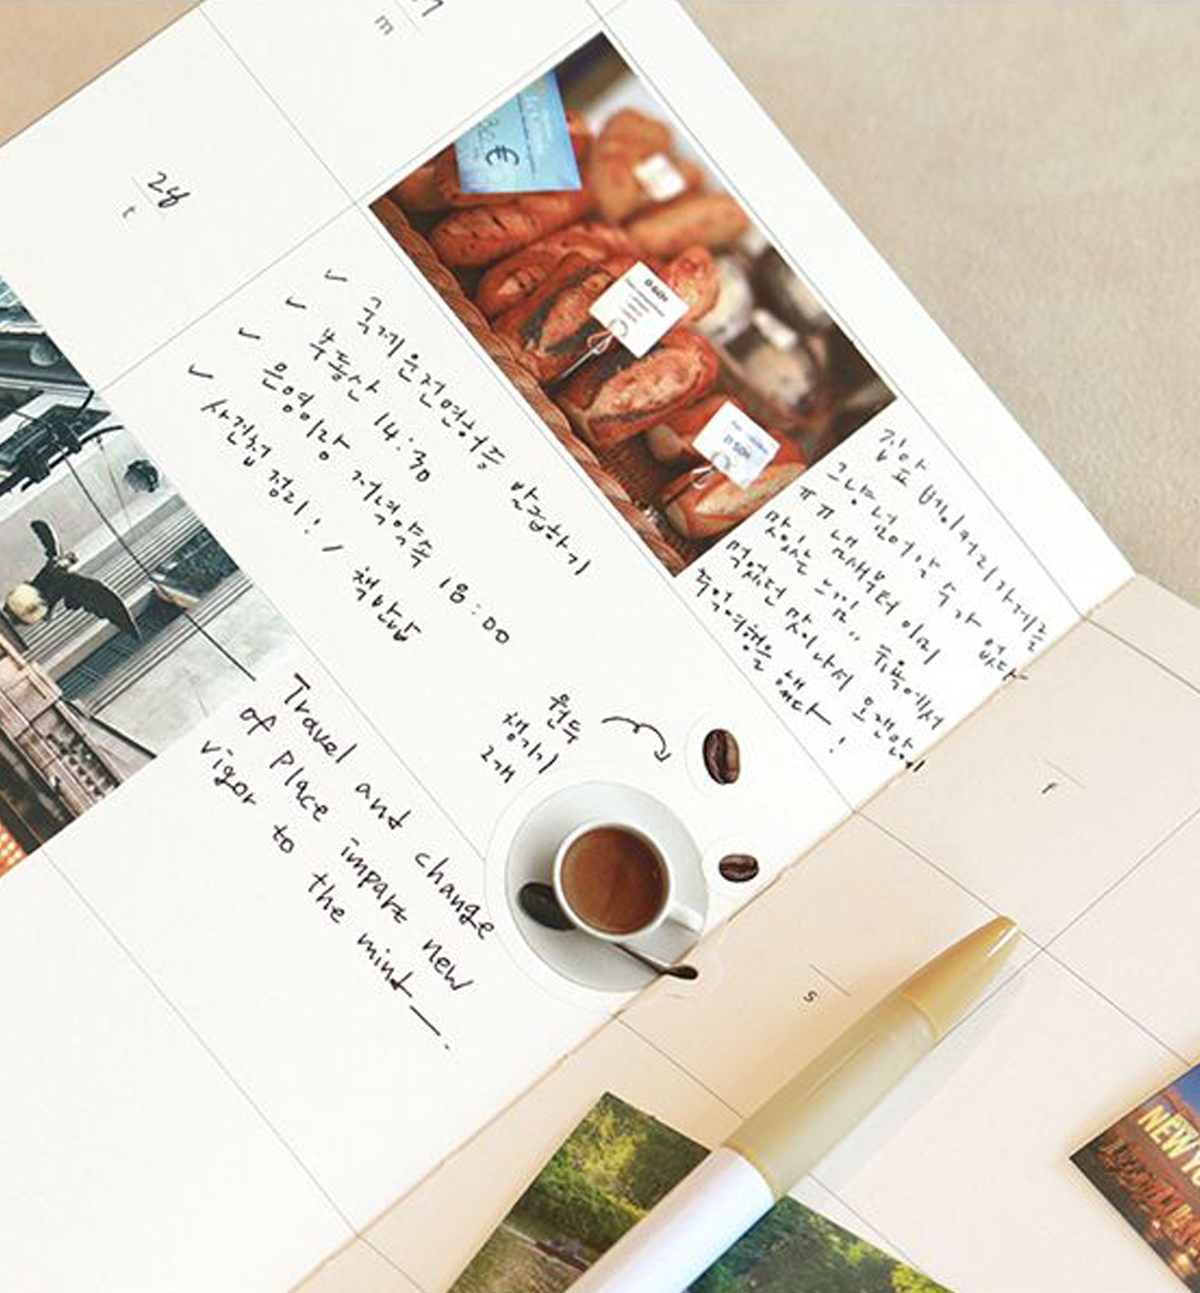 m
28
t
✓ 국제운전면허증 발급하기
✓ 부동산 14:30
✓ 은영이랑 저녁약속 18:00
✓ 사진첩 정리! / 책반납
€
집앞 빵
그냥 넘어갈 수가 없다
ㅠㅠ 냄새부터 이미
맛있는 느낌..
먹었던 맛이 나서 오랜만에
추억여행을 했다!
원두
챙기기
2개
Travel and change
of place impart new
vigor to the mind—.
f
s
NEW Y